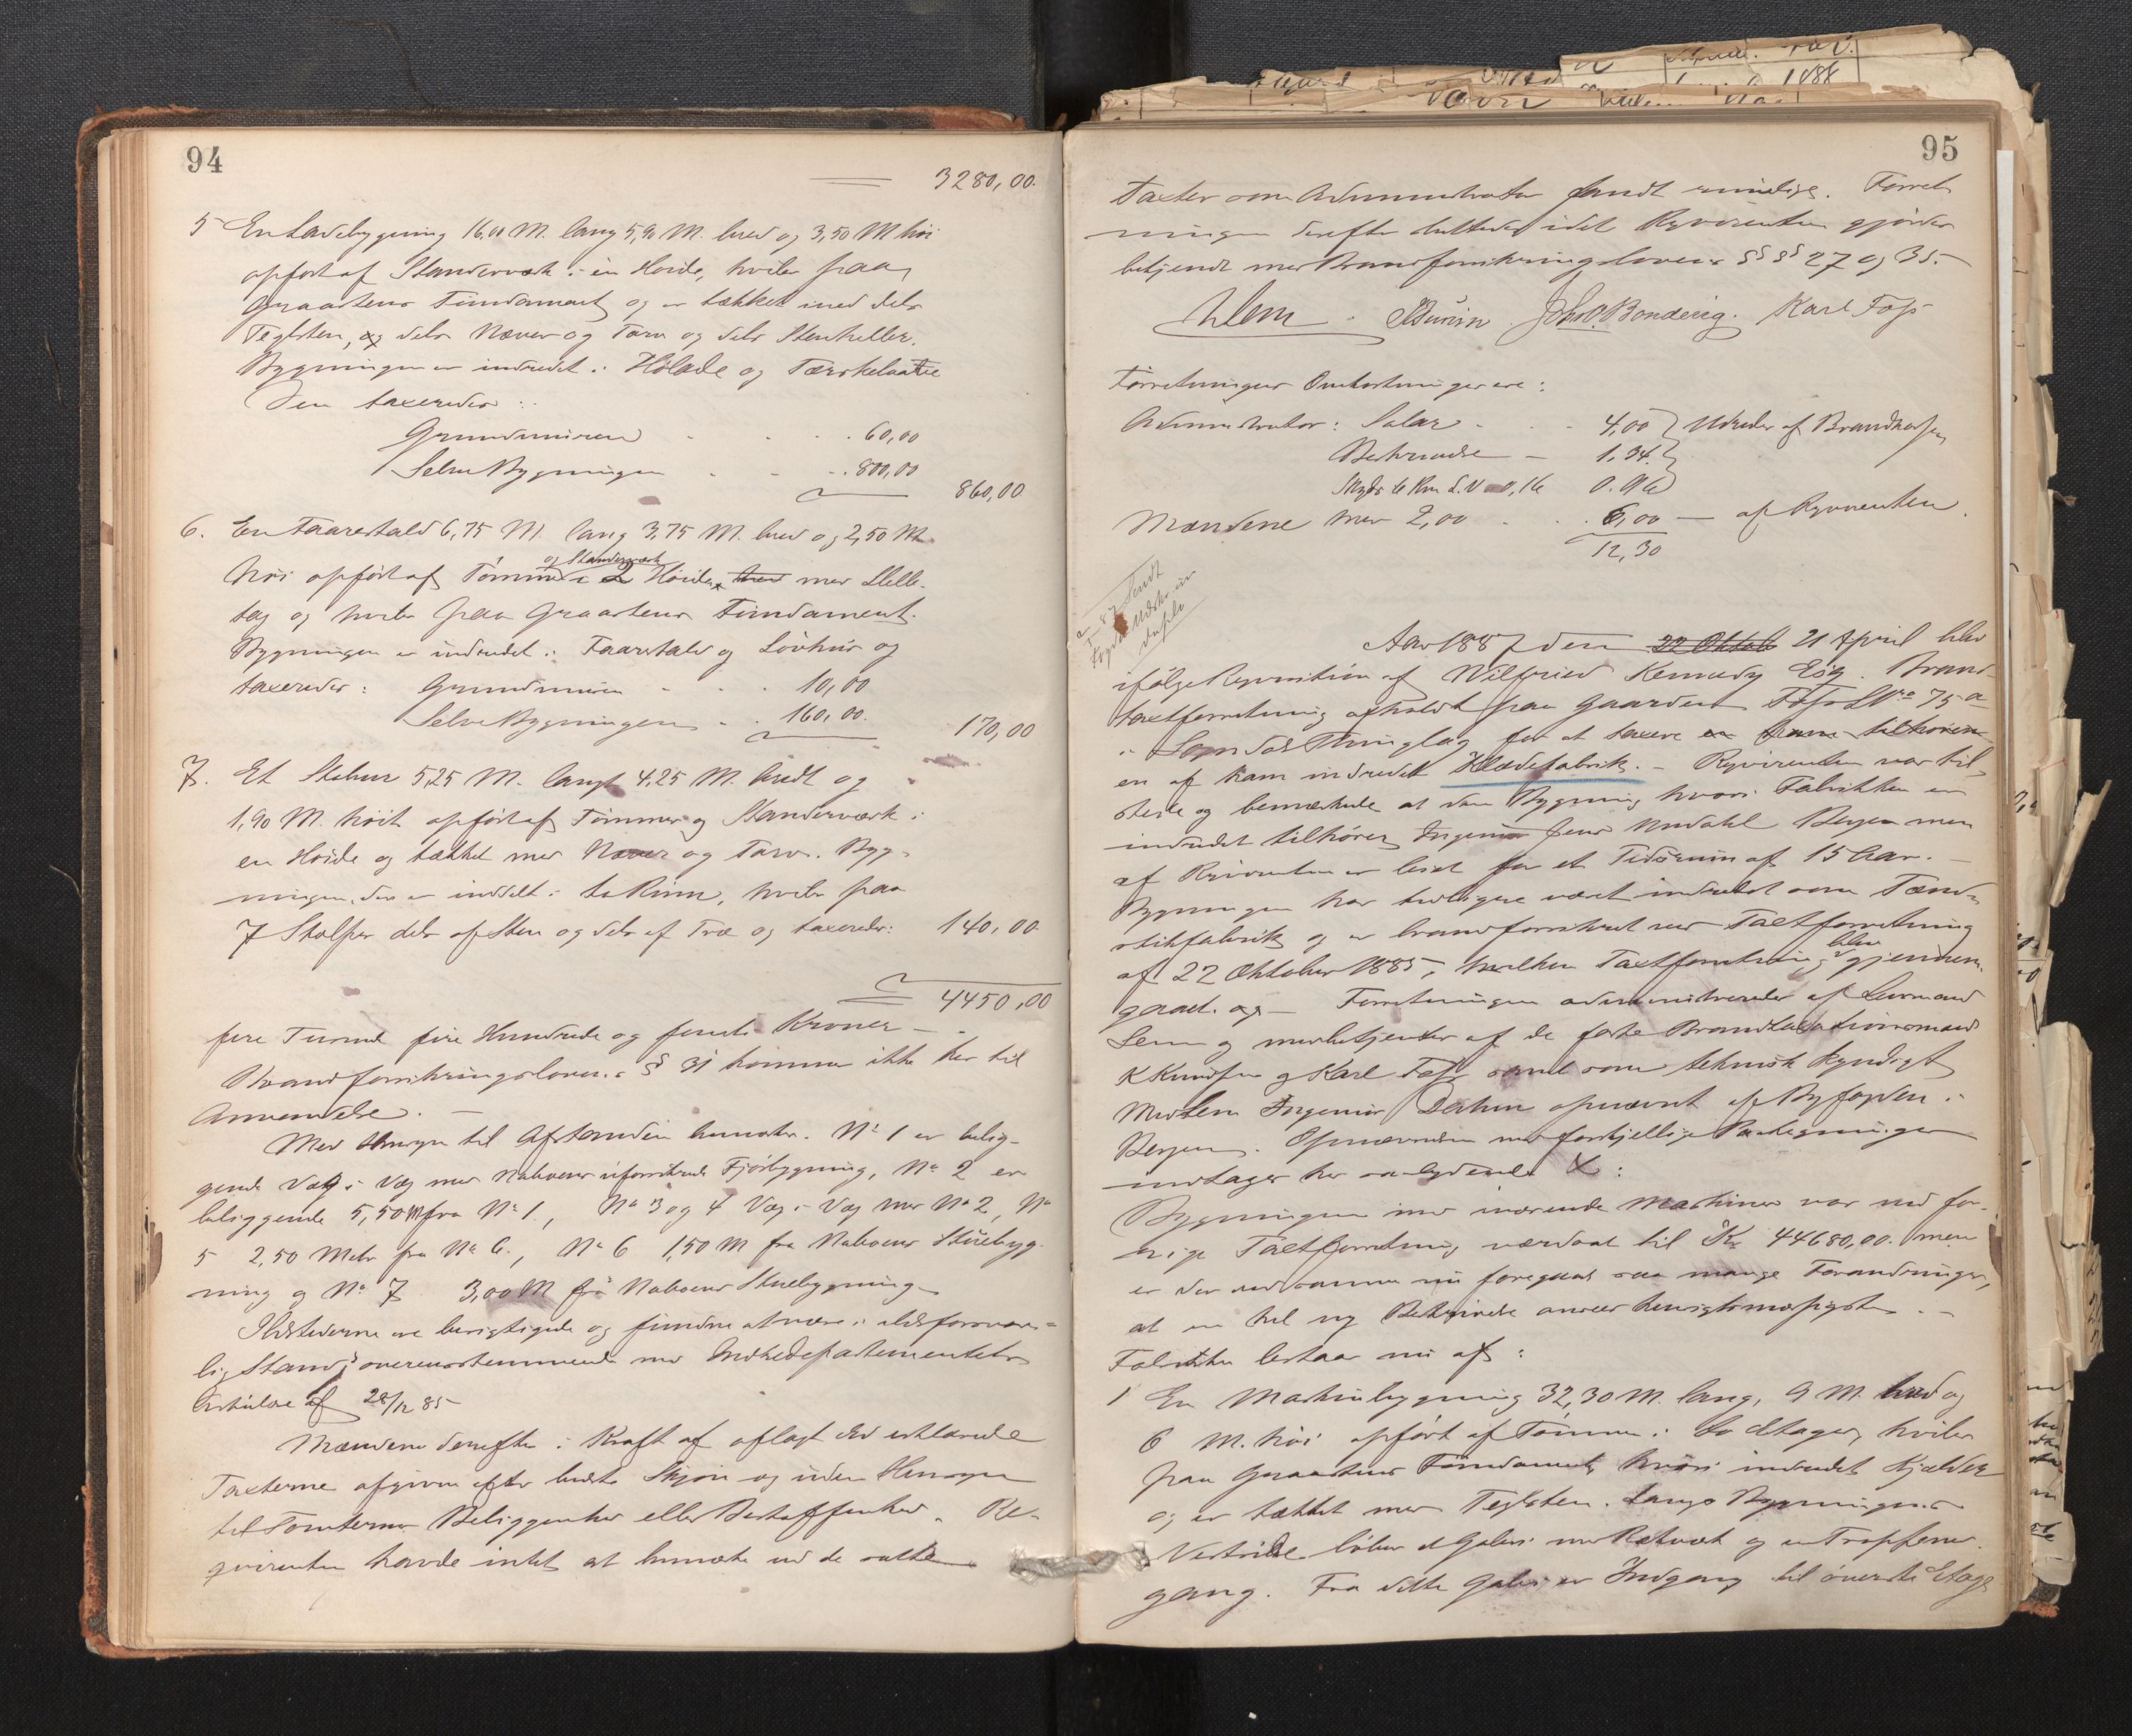 94
3280,00.
5 En Ladebygning 16,00 M. lang 5,90 M. bred og 3,50 M høi
opført af Standerværk i en Høide, hviler paa
Graastens Fundament og er tækket med dels
Teglsten, og dels Næver og Torv og dels Stenheller.
Bygningen er indredet i Hølade og Tærskelaave
Den taxeredes:
Grundmuren 60,00
Selve Bygningen 800,00
860,00
6. En Faarestald 6,75 M. lang 3,75 M. bred og 2,50 M.
og Standerværk
høi opført af Tømmer i 2 Høider med Helle-
tag og hviler paa Graastens Fundament.
Bygningen er indredet i Faarestald og Løvhus og
taxeredes: Grundmuren 10,00
Selve Bygningen 160,00.
170,00
7. Et Stabur 5,25 M. langt 4,25 M. bredt og
1,90 M. høit opført af Tømmer og Standerværk i
en Høide og tækket med Næver og Torv. Byg-
ningen, der er inddelt i to Rum, hviler paa
7 Stolper dels af Sten og dels af Træ og taxeredes: 140,00
4450,00
fire Tusind fire Hundrede og femti Kroner
Brandforsikringslovens § 31 kommer ikke her til
Anvendelse.
Med Hensyn til Afstanden bemærkes. No 1 er belig-
gende Væg i Væg med Naboens uforsikrede Fjøsbygning, No 2 er
beliggende 5,50 M fra No 1, No 3 og 4 Væg i Væg med No 2, No
5 2,50 Meter fra No 6., No 6 1,50 M fra Naboens Stuebyg-
ning og No 7 3,00 M fra Naboens Stuebygning
Ildstederne ere besigtigede og fundne at være i ildsforsvar-
lig Stand, overensstemmende med Indredepartementets
Cirkulære af 28/12 85
Mændene derefter i Kraft af aflagt Ed erklærede
Taxterne afgivne efter bedste Skjøn og uden Hensyn
til Tomternes Beliggenhed eller Beskaffenhed. Re-
qvirenten havde intet at bemærke ved de satte
95
Taxter som Administrator fandt rimelige. Forret-
ningen derefter sluttedes idet Reqvirenten gjordes
bekjendt med Brandforsikringslovens §§ 27 og 35.
Lem. Karl Foss
Forretningens Omkostninger ere:
Administrator: Salær 4,00 Udredes af Brandkassen
Beskrivelse 1,34.
Skyds 6 Km 0,16 0.96
Mændene med 2,00 6,00 af Reqvirenten.
12,30
Aar 1887 den 22 Oktob 21 April blev
ifølge Reqvisition af Wilfried Kennedy Esq. Brand-
taxtforretning afholdt paa Gaarden Foss LNo 75 a
i Thinglag for at taxere en ham tilhøren
en af ham indredet Klædefabrik. Reqvirenten var til-
stede og bemærkede at den Bygning hvori Fabrikken er
indredet tilhører Ingeniør Jens Bergen men
af Reqvirenten er leiet for et Tidsrum af 15 Aar.
Bygningen har tidligere været indredet som Tænd-
stikfabrik og er brandforsikret ved Taxtforretning
blev
af 22 Oktober 1885, hvilken Taxtforretning gjennem-
gaaet. Forretningen administreredes af Lensmand
Lem og medbetjentes af de faste Brandtaxationsmænd
K Knudsen og Karl Foss samt som teknisk kyndigt
Medlem Ingeniør opnævnt af Byfogden i
Bergen. Opnævnelsen med forskjellige Paategninger
indtages her saalydende X:
Bygningen med iværende Maskiner var ved for-
rige Taxtforretning værdsat til Kr 44680,00. men
er der ved samme nu foregaaet saa mange Forandringer,
at en hel ny Beskrivelse ansees hensigtsmæssigst.
Fabrikken bestaar nu af:
1 En Maskinbygning 32,30 M. lang, 9 M. bred og
6 M. høi opført af Tømmer i to Etager, hviler
paa Graastens Fundament, hvori indredet Kjælder
og er tækket med Teglsten. Langs Bygningens
Vestside løber et Galeri med Rækværk og en Trappeopp-
gang. Fra dette Galeri er Indgang til øverste Etage